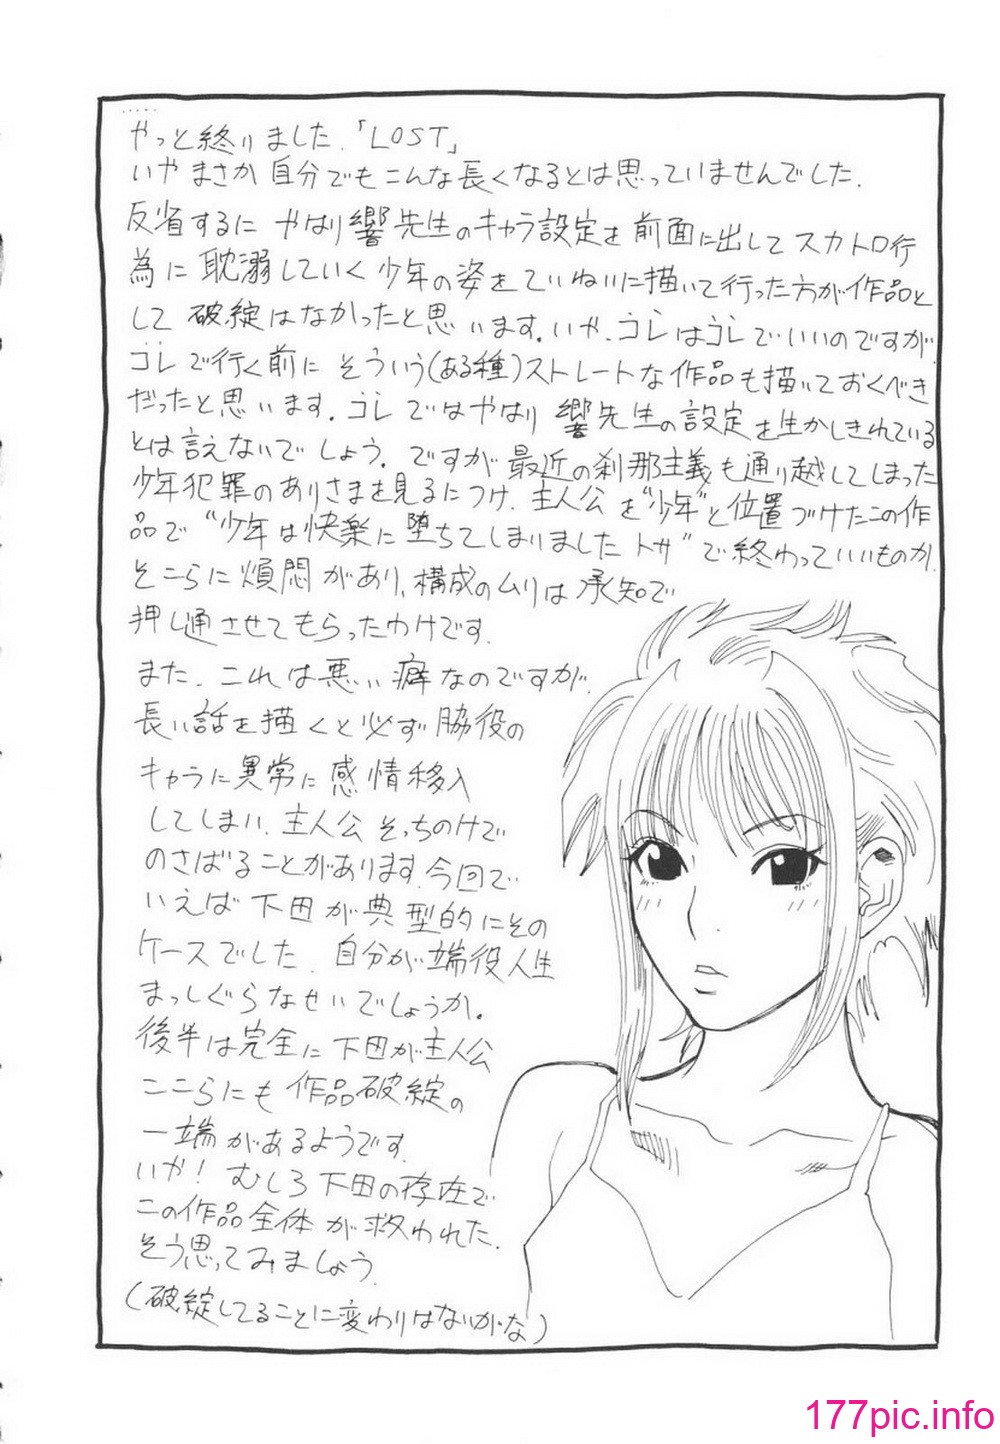 やっと終りました.「LOST」
いやまさか自分でもこんな長くなるとは思っていませんでした.
反省するにやはり響先生のキャラ設定を前面に出してスカトロ行
為に耽溺していく少年の姿をていねいに描いて行った方が作品と
して破綻はなかったと思います.いや、コレはコレでいいのですが.
コレで行く前にそういう(ある種)ストレートな作品も描いておくべき
だったと思います.コレではやはり響先生の設定を生かしきれている
とは言えないでしょう.ですが最近の刹那主義も通り越してしまった
少年犯罪のありさまを見るにつけ、主人公を"少年"と位置づけたこの作
品で"少年は快楽に堕ちてしまいましたトサ"で終わっていいものか.
そこらに煩悶があり、構成のムリは承知で
押し通させてもらったわけです.
また、これは悪い癖なのですが、
長い話を描くと必ず脇役の
キャラに異常に感情移入
してしまい、主人公そっちのけで
のさばることがあります.今回で
いえば下田が典型的にその
ケースでした.自分が端役人生
まっしぐらなせいでしょうか。
後半は完全に下田が主人公
ここらにも作品破綻の
一端があるようです.
いや!むしろ下田の存在で
この作品全体が救われた.
そう思ってみましょう.
(破綻してることに変わりはないがな)
177pic.info